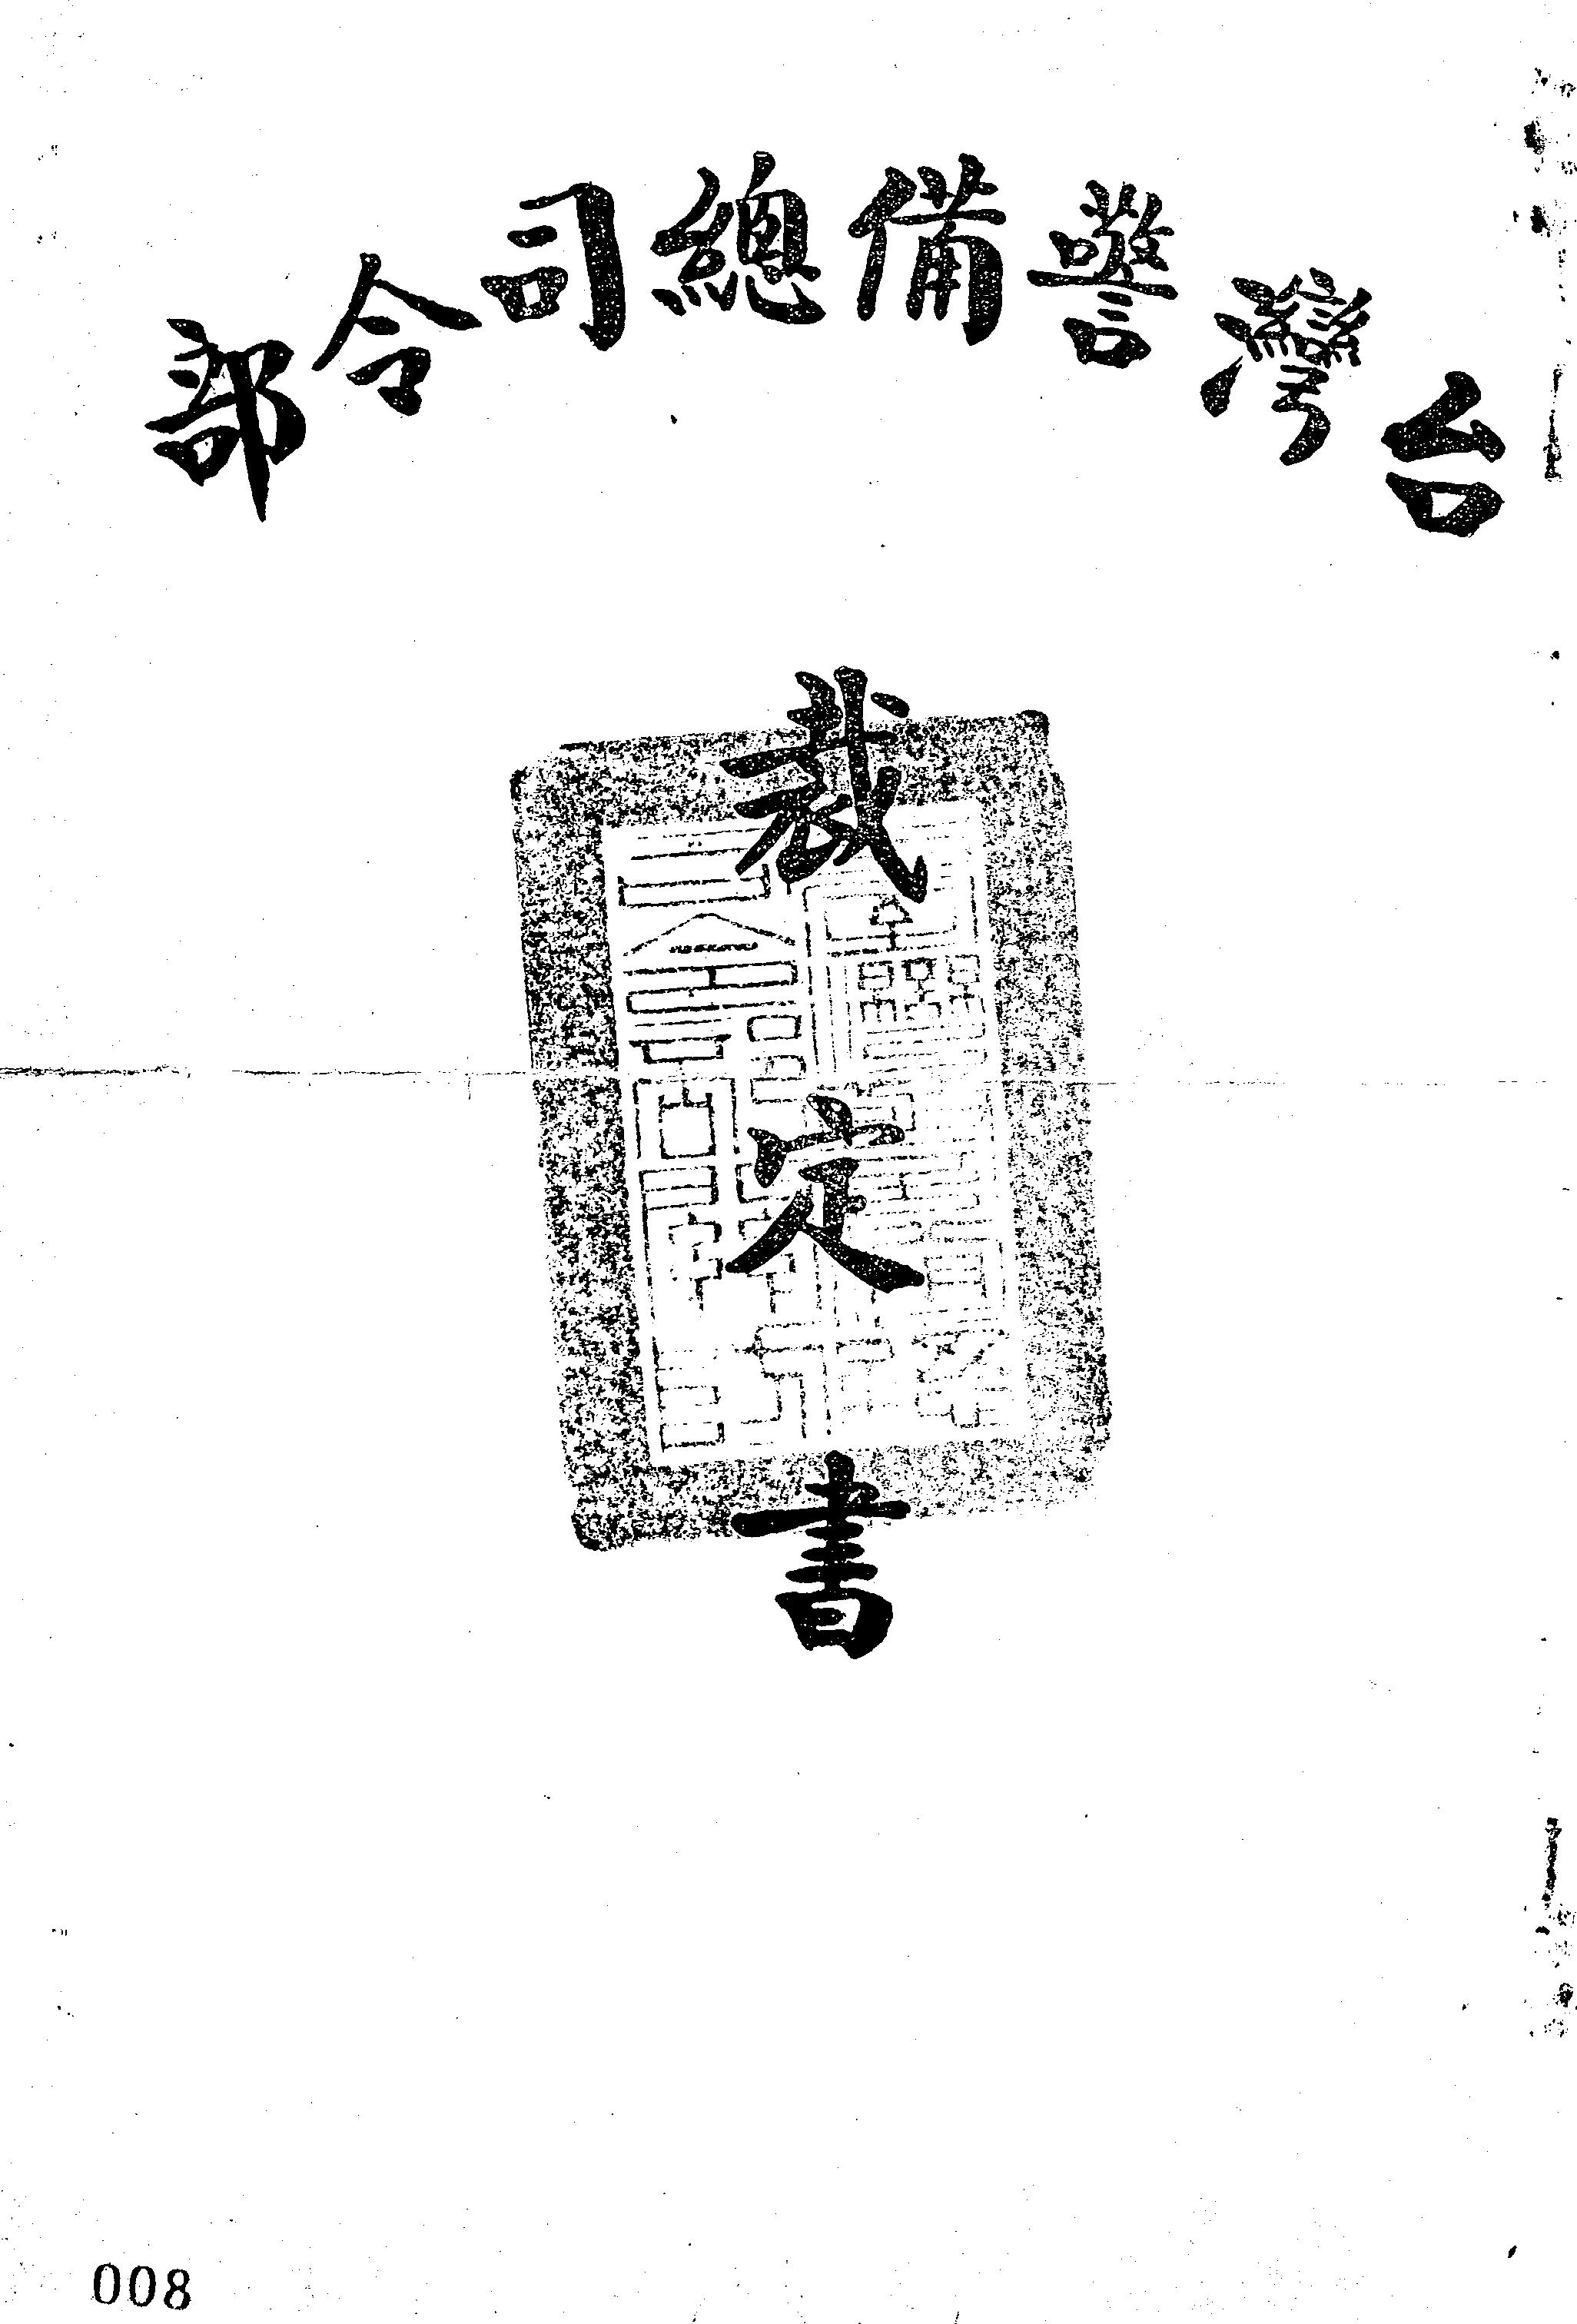 台灣警備總司令部
裁定書
008